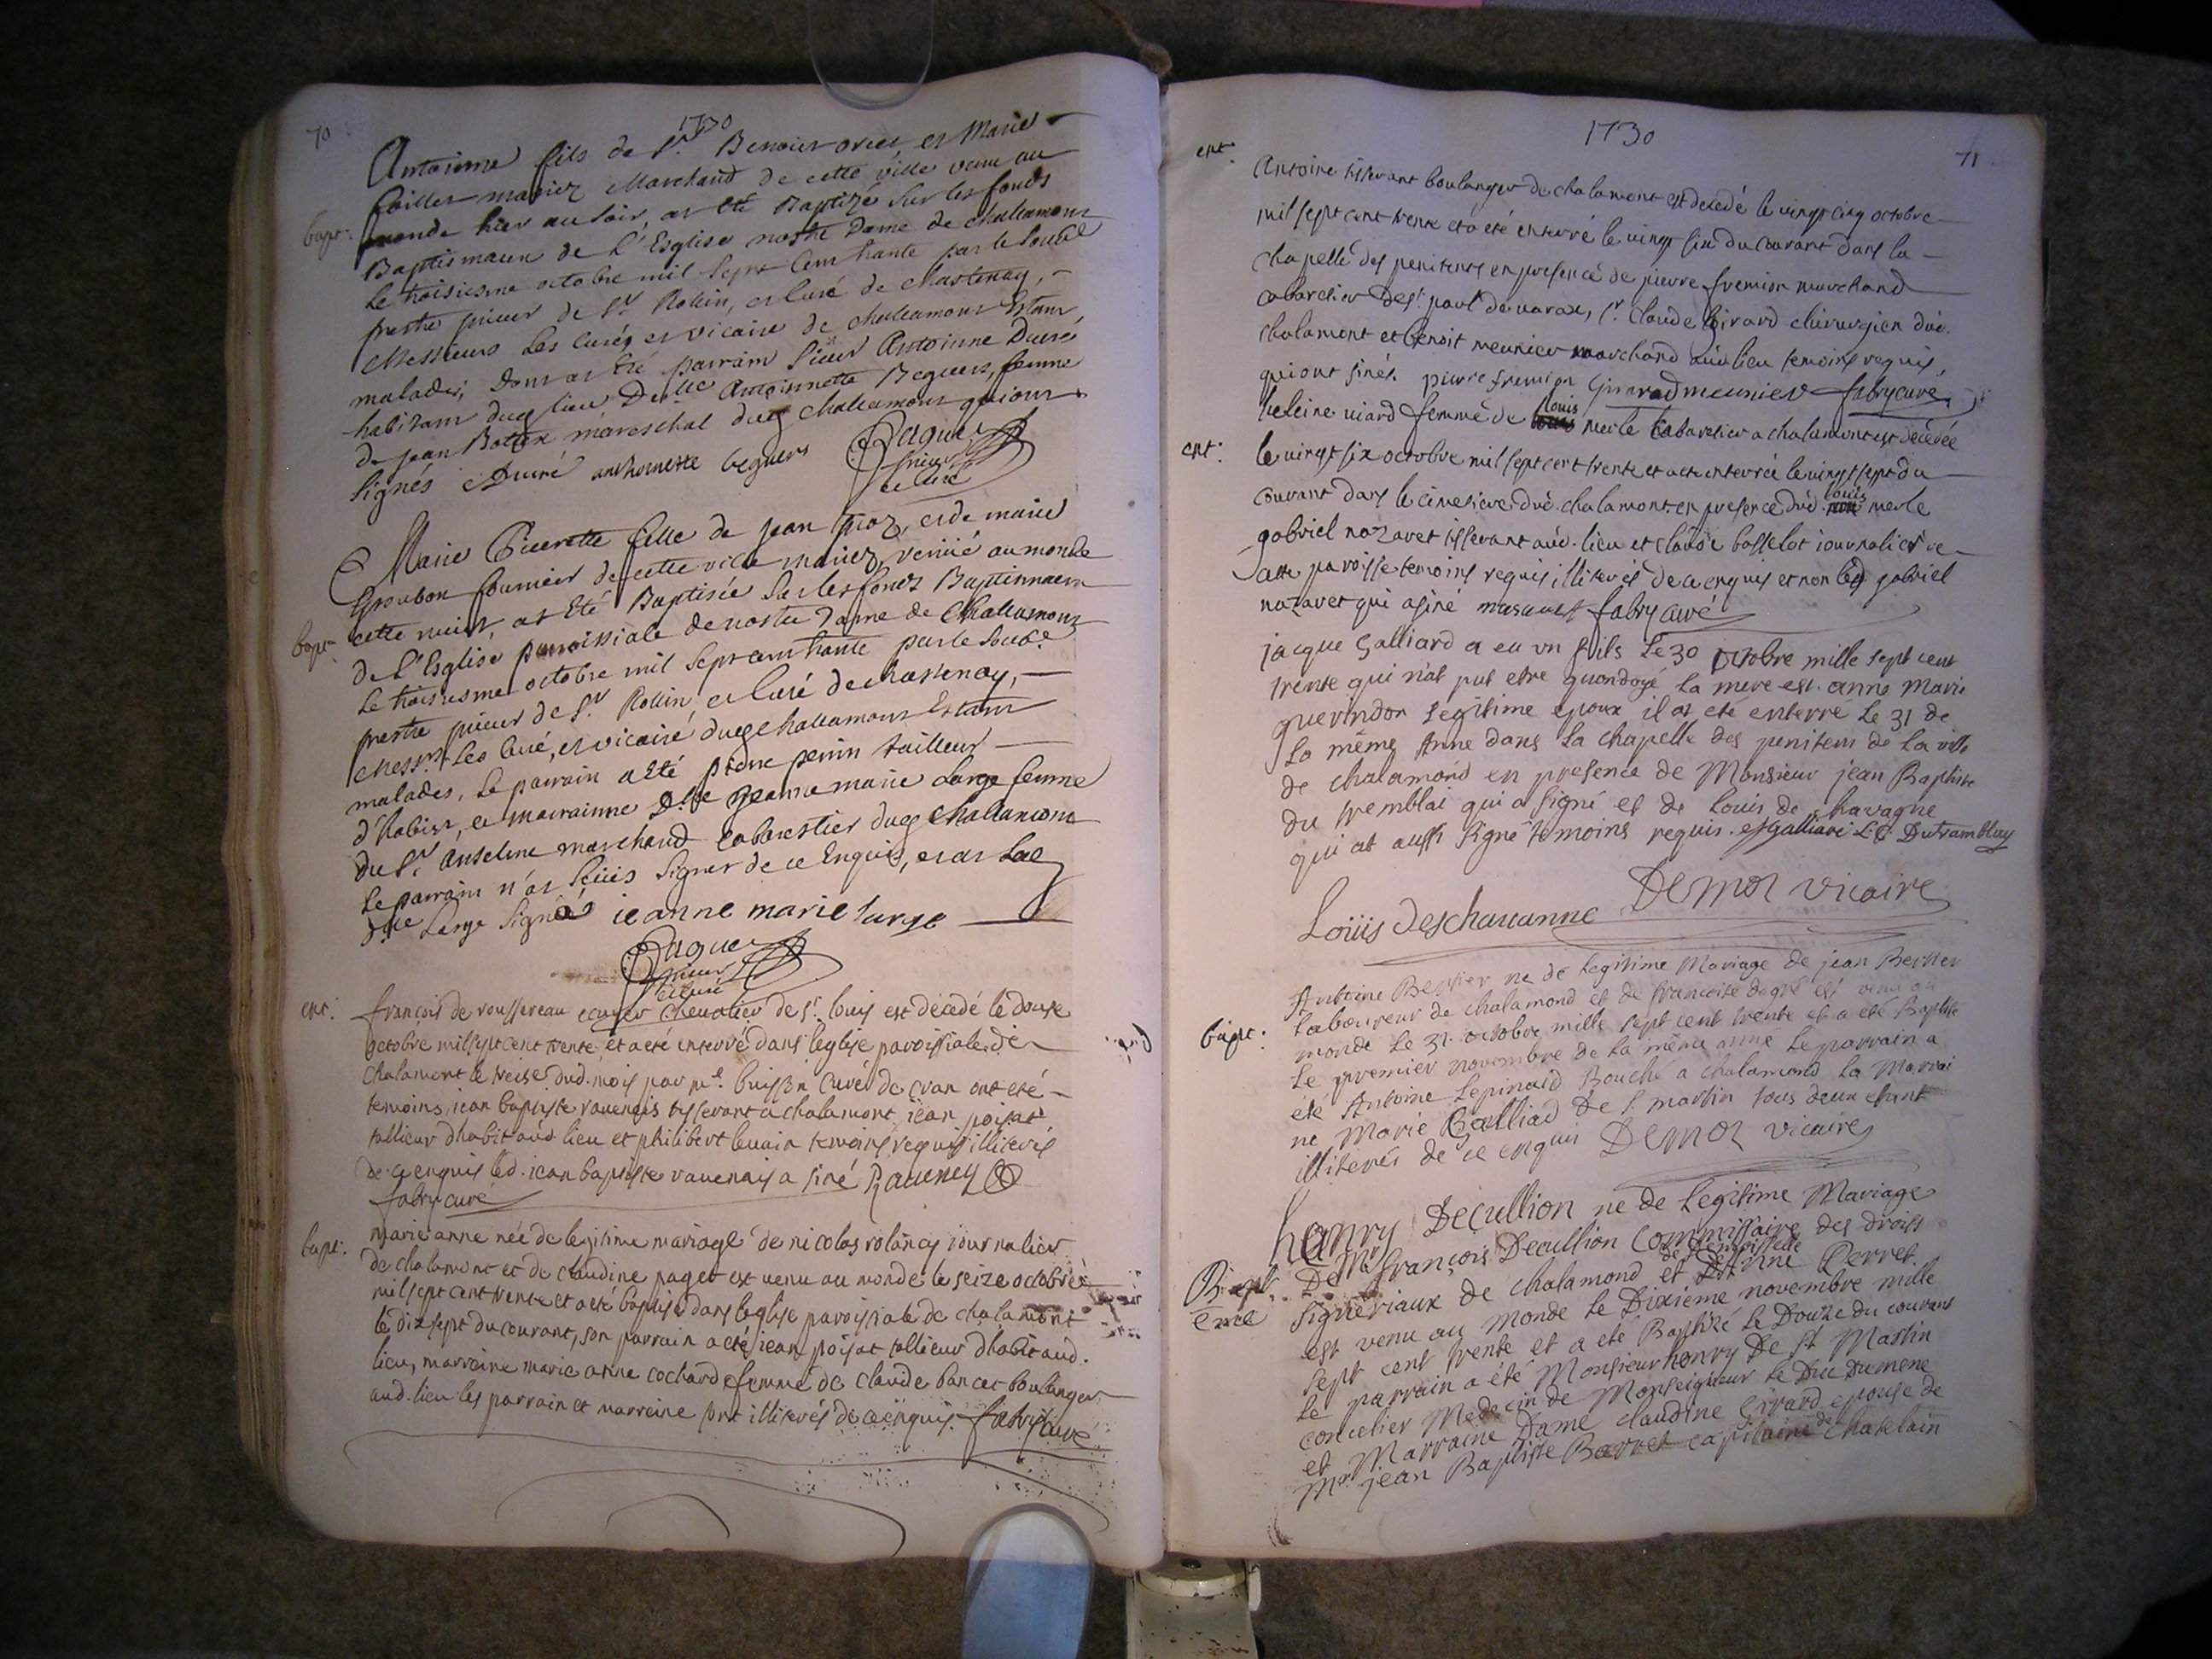 70
1730
Antoinne fils de Sr. Benoist et Marie
mariez Marchand de cette ville venu au
bapt.
monde hier au soir, at eté Baptizé sur les fonds
Baptismaux de L'Esglise nostre Dame de Challamont
Le troisiesme octobre mil sept cent trante par le soubsé
prestre prieur de St. Rollin, et curé de Chastenay,
Messieurs Les Curéz et vicaire de Challamont Estant
malades, dont at eté parrain Sieur Antoinne Ducré
habitant dudt lieu Delle Antoinnette Beguers, femme
de jean mareschal dudt Challamont qui ont
signés Ducré anthoinette beguers
prieur
et curé
Marie Pierrette fille de jean et de marie
fournier de cette ville mariez, venüe au monde
bapt.
cette nuist, at eté Baptisée sur les fonds Baptismaux
de L'Esglise parroissiale de nostre Dame de Challamont
Le troisiesme octobre mil sept cent trante par le soubé
prestre prieur de St. Rollin, et curé de chastenay,
Messrs. Les curé, et vicaire dudt Challamont Estant
malades. Le parrain a eté pierre perrin tailleur
d'habist, et marrainne Dlle Jeanne marie Large femme
du Sr. Anselme marchand Cabarestier dudt Challamont
Le parrain n'at sçeüs signer de ce Enquis, et at lad
Dlle Large Signée jeanne marie large
prieur
et curé
ent.
françois de roussereau ecuyer chevalier de st. louis est décedé le douse
octobre mil sept cent trente, et a eté enterré dans l'eglise paroissiale de
chalamont le treise dud. mois par mr. buisson curé de cran ont eté
temoins, jean baptiste ravenais tisserant a chalamont jean poisat
tallieur dhabit aud lieu et philibert temoins requis illiterés
de ce enquis led. jean baptiste ravenais a siné Raveney
fabry curé
bapt.
marie anne née de legitime mariage de nicolas rolancy journalier
de chalamont et de claudine paget est venu au monde le seize octobre
mil sept cent trente et a eté baptisé dans l'eglise paroissiale de chalamont
le dix sept du courant, son parrain a eté jean poisat tallieur dhabit aud.
lieu, marreine marie anne cochard femme de claude bancet boulanger
aud. lieu les parrain et marreine sont illiterés de ce enquis. fabry curé
1730
71
ent.
Antoine tisserant boulanger de chalamont est decedé le vingt cinq octobre
mil sept cent trente et a eté enterré le vingt six du courant dans la
chapelle des penitents en presence de pierre fremion marchand
cabaretier de st. paul de varax, sr. claude Girard chirurgien dud.
chalamont et benoit meunier marchand aud lieu temoins requis,
qui ont sinés. pierre fremion Girard meunier fabry curé
heleine viard femme de louis merle cabaretier a chalamont est decedée
ent.
le vingt six octobre mil sept cent trente et a eté enterrée le vingt sept du
courant dans le cimetiere dud. chalamont en presence dud. louis merle
gabriel nazaret tisserant aud. lieu et claude basselot journalier
paroisse temoins requis illiterés de ce enquis et non led gabriel
nazaret qui a siné fabry curé
jacque Galliard a eu un fils Le 30 octobre mille sept cent
trente qui n'at put etre quondoyé La mere est. anne Marie
guerindon Legitime epoux il at eté enterré Le 31 de
La même Anne dans La chapelle des penitens de La ville
de chalamond en presence de Monsieur jean Baptiste
du tremblai qui a signé et de Louis de chavagne
qui at aussi signé temoins requis. Galliard Dutramblay
Demoz vicaire
Loüis deschauanne
Antoine Bernier ne de Legitime Mariage de jean Bernier
Laboureur de chalamond et de francoise est venu au
bapt:
monde Le 31 octobre mille sept cent trente et a eté Baptisé
Le premier novembre de La même anne Le parrain a
eté Antoine Lepinaid Bouché a chalamond La Marrai
ne Marie Galliad de s. martin tous deux etant
illiterés de ce enquis Demoz vicaire
henry Decullion ne de Legitime Mariage
De Mr françois Decullion Commissaire des droits
Signeriaux de chalamond et de Demoiselle Perret
est venu au monde Le Dixieme novembre mille
sept cent trente et a eté Baptizé Le Douze du courant
Le parrain a été Monsieur henry De St Martin
concelier Medecin de Monseigneur Le Duc Dumene
et Marraine Dame claudine Girard epouse de
Mr jean Baptiste capitaine chatelain